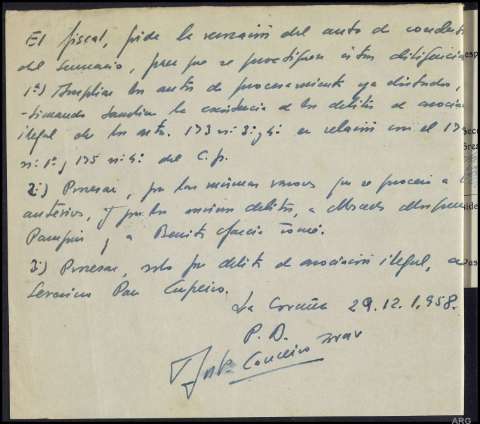 El fiscal, pide la revocación del auto de conclusión
del sumario, para que se practiquen estas diligencias
1ª) Ampliar los autos de procesamiento ya dictados,
-timando también la existencia de los delitos de asociación
ilegal de los arts. 173 nº 3º y 4º en relación con el 174
nº 1º y 175 nº 4º del C.p.
2ª) Procesar, por las mismas razones que se procesó a
anteriores, y por los mismos delitos, a
y a Benito García Tomé.
3ª) Procesar, solo por delito de asociación ilegal, a
Pan
La Coruña 29.12.1.958.
P. D.
ARG